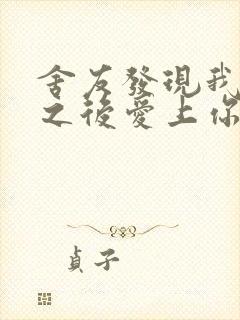 舍友發現我
之後愛上你
貞子